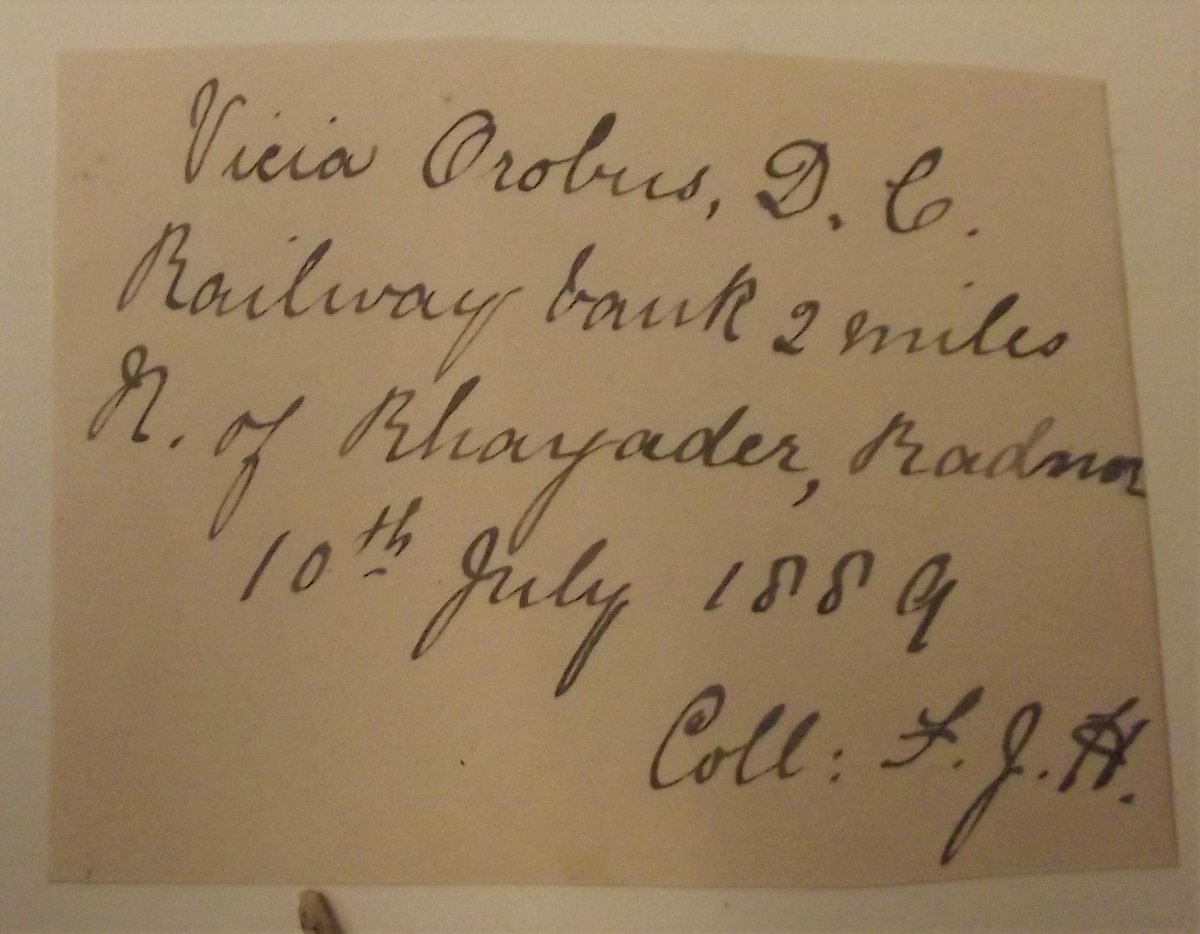 Vicia Orobus, D. C.
Railway bank 2 miles
N. of Rhayader, Radnor
10th July 1889
Coll: F. J. H.